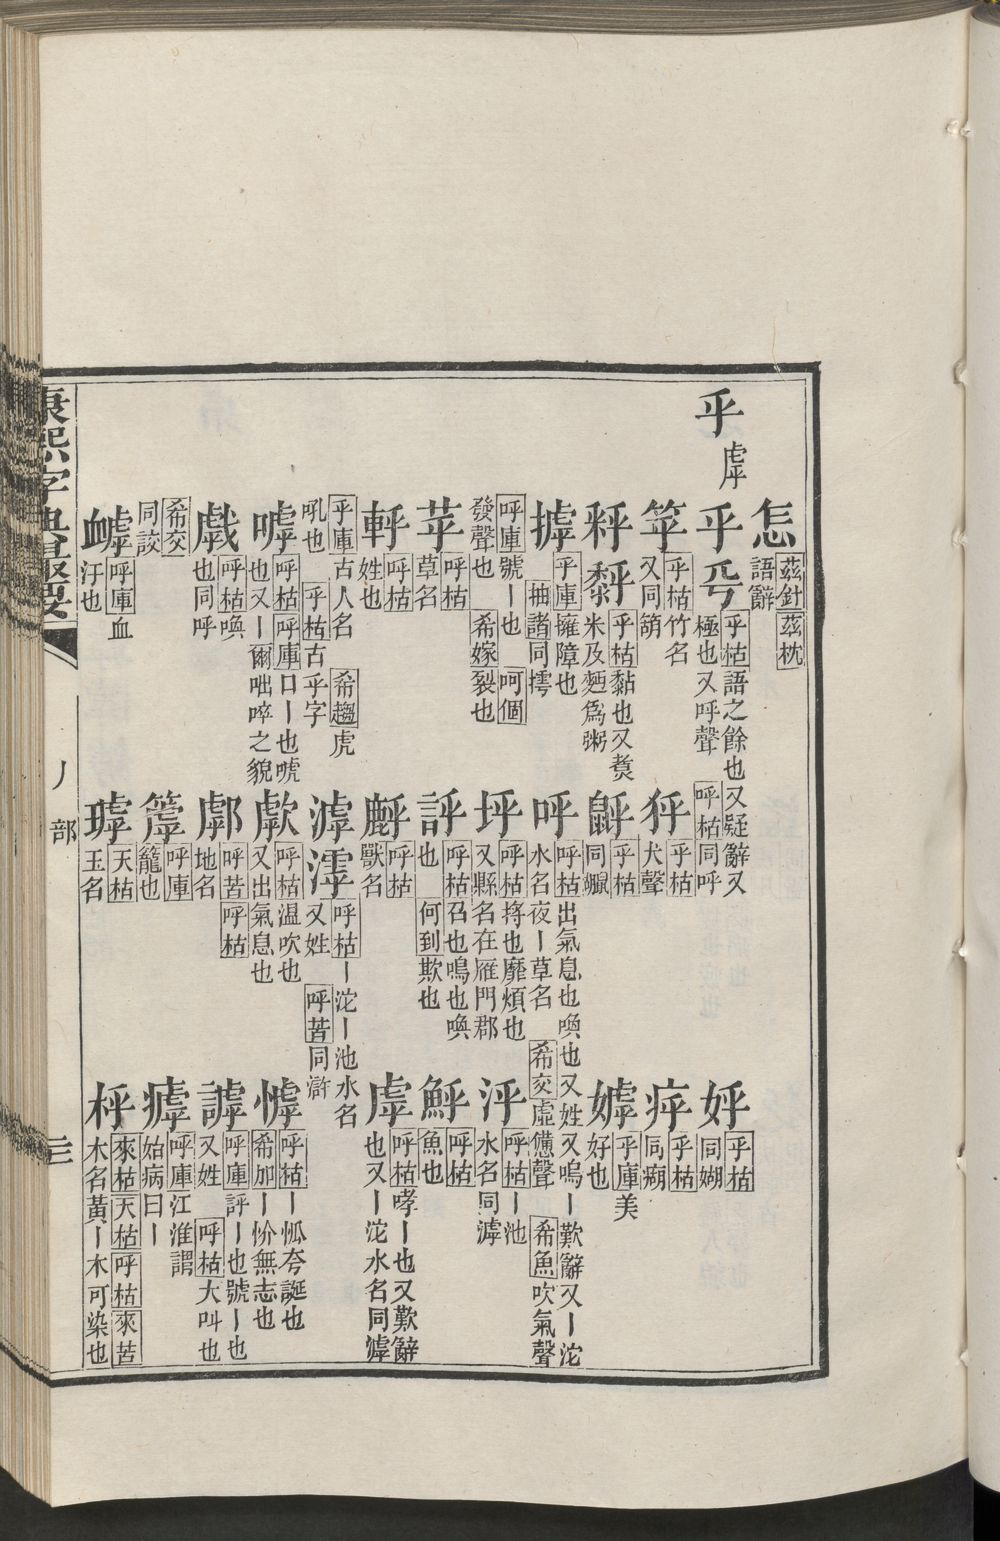 怎 茲針茲枕語辭
乎虖
乎𠂞 乎枯語之餘也又疑辭又極也又呼聲 呼枯同呼
㛿 乎枯同媩
乎枯竹名又同箶
乎枯犬聲
乎枯同
乎枯黏也又煑米及麫爲粥
乎枯同
嫭 乎庫美好也
摢 乎庫擁障也 抽諸同摴
呼 呼枯出氣息也喚也又姓又嗚丨歎辭又丨沱水名夜丨草名 希交虛憍聲 希魚吹氣聲
呼庫號丨也 呵個發聲也 希嫁裂也
垀 呼枯捋也靡煩也又縣名在雁門郡
泘 呼枯丨池水名同滹
苸 呼枯草名
評 呼枯召也鳴也喚也 何到欺也
呼枯魚也
軤 呼枯姓也
呼枯獸名
虖 呼枯哮丨也又歎辭也又丨沱水名同滹
乎庫古人名 希趨虎吼也 乎枯古乎字
滹 呼枯丨沱丨池水名又姓 呼苦同滸
嘑 呼枯呼庫口丨也唬也又丨爾咄啐之貌
歑 呼枯溫吹也又出氣息也
呼枯丨怀夸誕也 希加丨忦無志也
戲 呼枯喚也同呼
呼苦呼枯地名
謼 呼庫評丨也號丨也又姓 呼枯大叫也
希交同詨
呼庫籠也
呼庫江淮謂始病曰丨
呼庫血汙也
天枯玉名
來枯天枯呼枯來苦木名黃丨木可染也
康熙字典撮要
丿部
三